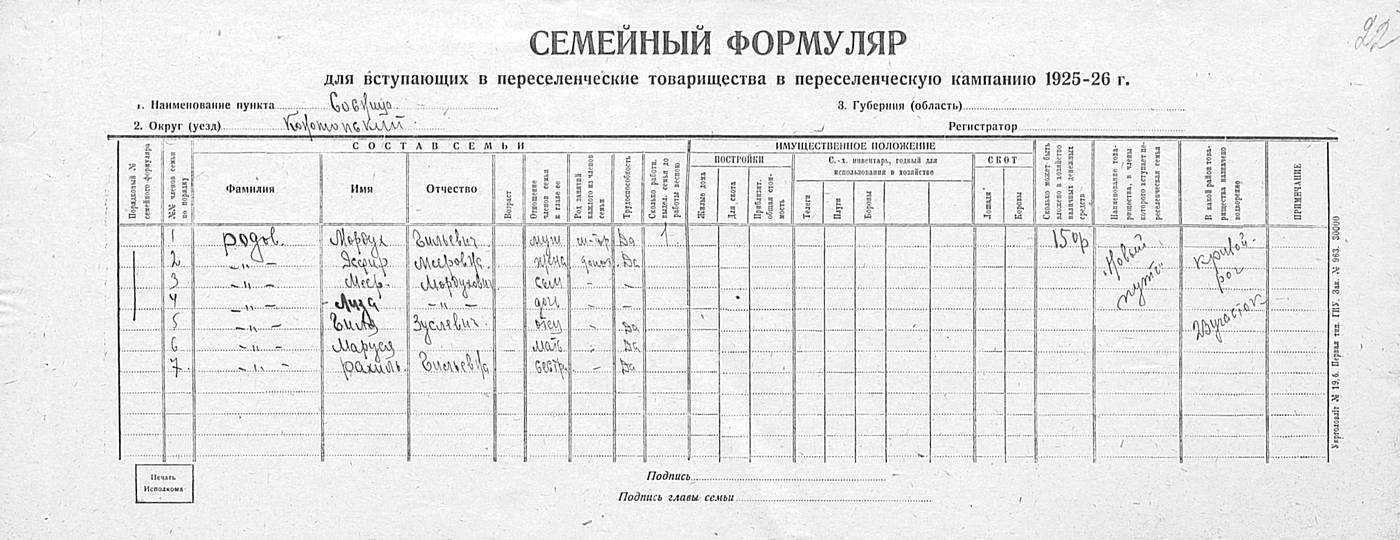 22
СЕМЕЙНЫЙ ФОРМУЛЯР
для вступающих в переселенческие товарищества в переселенческую кампанию 1925-26 г.
1. Наименование пункта
3. Губерния (область)
2. Округ (уезд) Конотопский
Регистратор
Порядковый № семейного формуляра
№№ членов семьи по порядку
СОСТАВ СЕМЬИ
Фамилия
Имя
Отчество
Возраст
Отношение членов семьи к главе ее
Род занятий каждого из членов семьи
Трудоспособность
Сколько работн. выдел. семья до работы весною
ИМУЩЕСТВЕННОЕ ПОЛОЖЕНИЕ
ПОСТРОЙКИ
Жилые дома
Для скота
Приблизит. общая стоимость
С.-х. инвентарь, годный для использования в хозяйстве
Телеги
Плуги
Бороны
СКОТ
Лошади
Коровы
Сколько может быть вложено в хозяйство наличных денежных средств
Наименование товарищества, в члены которого вступает переселенческая семья
В какой район товарищества назначено водворение
ПРИМЕЧАНИЕ
1 Родов Мордух Гильевич муж Да 1 150р „Новый путь“ Кривой-рог
2 —„— Эсфир Мееровна жена Да
3 —„— Меер Мордухович сын – –
4 —„— Лиза —„— доч – –
5 —„— Гиля Зуслевич отец – Да 2й участок
6 —„— Маруся мать Да
7 —„— Рахиль Гильевна сестра – Да
Печать Исполкома
Подпись
Подпись главы семьи
Укрголовліт № 19,6. Первая тип. ГПУ. Зак. № 963. 30000